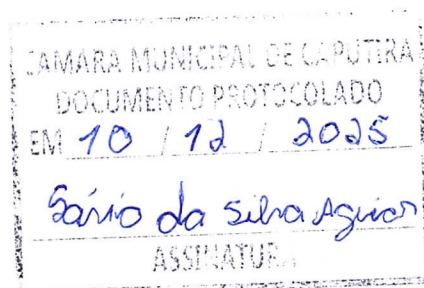 CAMARA MUNICIPAL DE CAPUTIRA
DOCUMENTO PROTOCOLADO
EM 10 / 12 / 2025
da Silva Aguiar
ASSINATURA